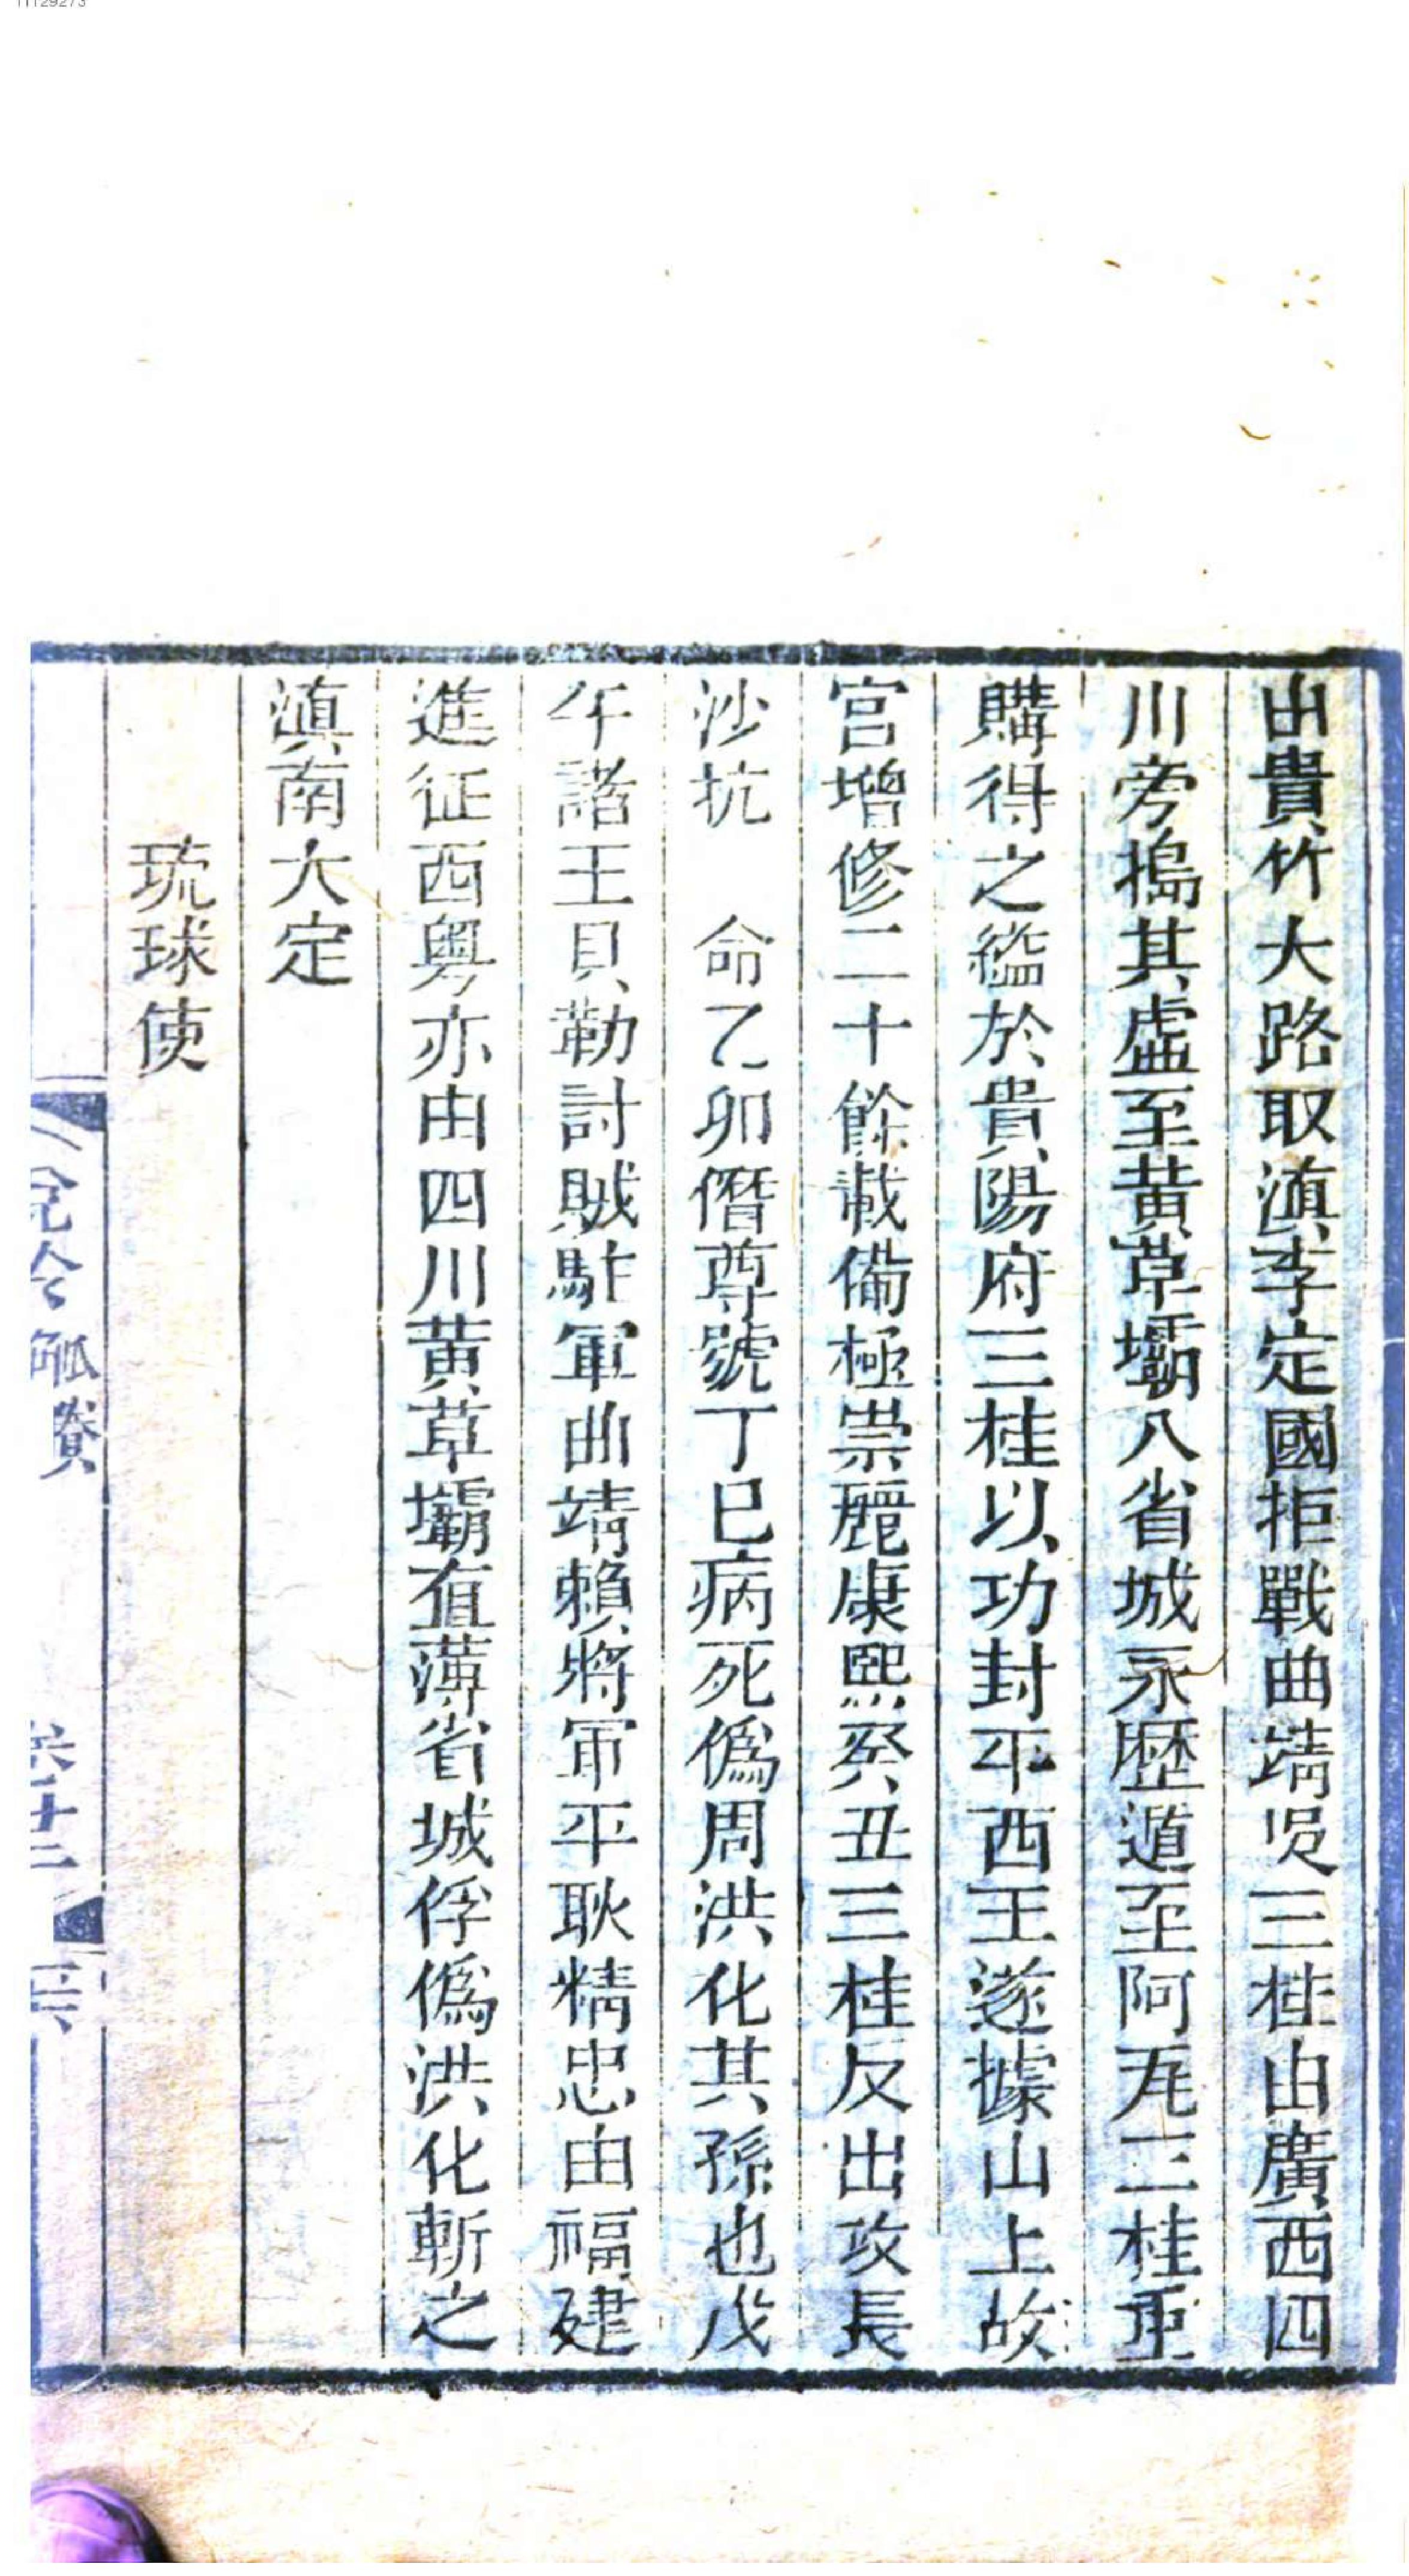 由貴竹大路取滇李定國拒戰曲靖吳三桂由廣西四
川旁搗其虛至黃草壩入省城永歷遁至阿瓦三桂重
購得之縊於貴陽府三桂以功封平西王遂據山上故
宮增修二十餘載備極崇麗康熙癸丑三桂反出攻長
沙抗　命乙卯僭尊號丁巳病死僞周洪化其孫也戊
午諸王貝勒討賊駐軍曲靖賴將軍平耿精忠由福建
進征西粵亦由四川黃草壩直薄省城俘僞洪化斬之
滇南大定
琉球使
觚賸
11129273